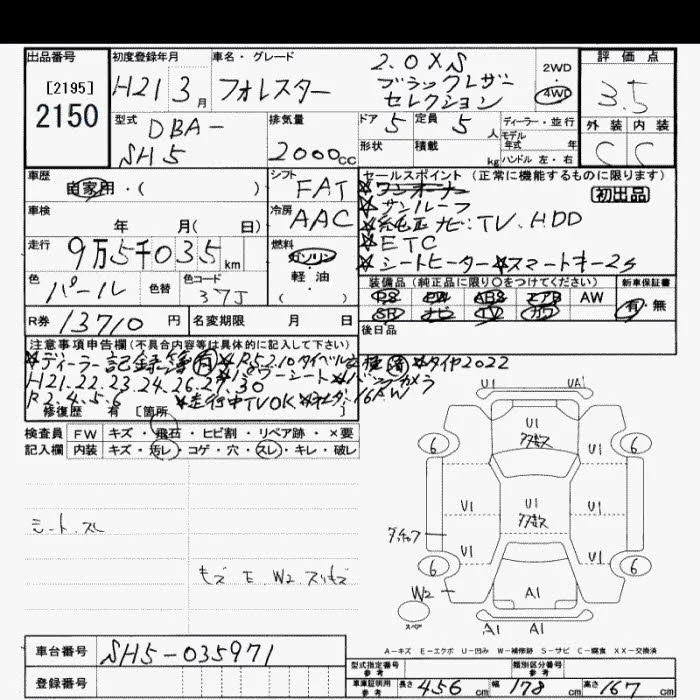 出品番号
[2195]
2150
初度登録年月
H21 3月
車名・グレード
フォレスター
2.0XS
ブラックレザー
セレクション
2WD
4WD
評価点
3.5
外装 内装
C C
型式
DBA-
SH5
排気量
2000cc
ドア 5
定員 5人
形状
積載 kg
ディーラー・並行
モデル
年式 年
ハンドル 左・右
車歴
自家用・( )
シフト
FAT
車検
年 月( 日)
冷房
AAC
走行
9万5千035km
燃料
ガソリン
軽・油
( )
色
パール
色替
色コード
37J
R券 13710円
名変期限 月 日
セールスポイント (正常に機能するものに限ります)
初出品
☆ワンオーナー
☆サンルーフ
☆純正ナビ・TV・HDD
☆ETC
☆シートヒーター☆スマートキー2ヶ
装備品(純正品に限り○をつけてください)
新車保証書
PS PW ABS エアB AW
SR ナビ TV カワ
有・無
後日品
注意事項申告欄(不具合内容等は具体的に記入して下さい)
☆ディーラー記録簿有☆R5.2.10タイベル交換済☆タイヤ2022
H21.22.23.24.26.27.30☆パワーシート☆バックカメラ
R2.4.5.6 ☆走行中TVOK☆ 16AW
修復歴 有 [箇所
検査員
記入欄
FW キズ・飛石・ヒビ割・リペア跡・×要
内装 キズ・汚レ・コゲ・穴・スレ・キレ・破レ
シート スレ
キズ E W2 スリキズ
U1 UA1
6 U1 タタ数 6
U1 U1 U1
タタ数
U1 U1
6 6
W2 A1
スペア
A1 A1
A-キズ E-エクボ U-凹み W-補修跡 S-サビ C-腐食 XX-交換済
車台番号 SH5-035971
登録番号
型式指定番号
参考
類別区分番号
参考
車庫証明用
参考
長さ 456cm 幅 178cm 高さ 167cm